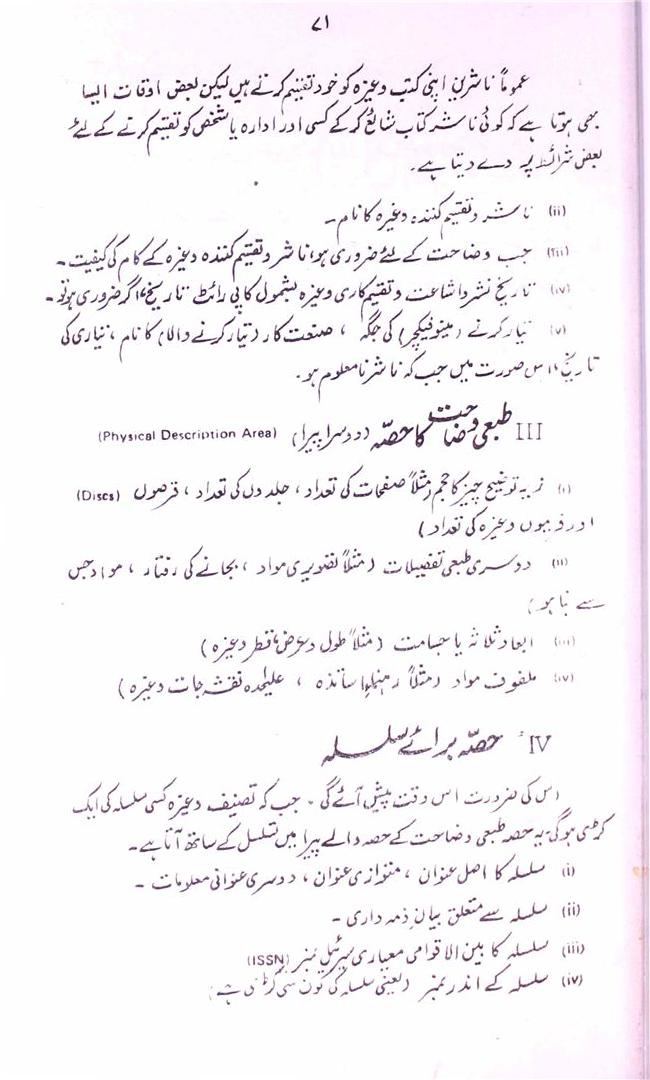 ۷۱
عموماً ناشرین اپنی کتب وغیرہ کو خود تقسیم کرتے ہیں لیکن بعض اوقات ایسا
بھی ہوتا ہے کہ کوئی ناشر کتاب شائع کر کے کسی اور ادارہ یا شخص کو تقسیم کرنے کے لئے
بعض شرائط پر دے دیتا ہے۔
(ii) ناشر و تقسیم کنندہ وغیرہ کا نام۔
(iii) جب وضاحت کے لئے ضروری ہو، ناشر و تقسیم کنندہ وغیرہ کے کام کی کیفیت۔
(iv) تاریخ نشر و اشاعت و تقسیم کاری وغیرہ بشمول کاپی رائٹ تاریخ، اگر ضروری ہو تو۔
(v) تیار کرنے (مینوفیکچر) کی جگہ ، صنعت کار (تیار کرنے والا) کا نام ، تیاری کی
تاریخ ، اس صورت میں جب کہ ناشر نامعلوم ہو۔
III طبعی وضاحت کا حصہ (دوسرا پیرا) (Physical Description Area)
(i) زیر توضیح چیز کا حجم (مثلاً صفحات کی تعداد ، جلدوں کی تعداد ، قرصوں (Discs)
اور ڈبوں وغیرہ کی تعداد)
(ii) دوسری طبعی تفصیلات (مثلاً تصویری مواد ، بجانے کی رفتار ، مواد جس
سے بنا ہو)
(iii) ابعاد ثلاثہ یا جسامت (مثلاً طول و عرض، قطر وغیرہ)
(iv) ملفوف مواد (مثلاً رہنمائے اساتذہ ، علیحدہ نقشہ جات وغیرہ)
IV حصہ برائے سلسلہ
اس کی ضرورت اس وقت پیش آئے گی۔ جب کہ تصنیف وغیرہ کسی سلسلہ کی ایک
کڑی ہو گی یہ حصہ طبعی وضاحت کے حصہ والے پیرا میں تسلسل کے ساتھ آتا ہے۔
(i) سلسلہ کا اصل عنوان ، متوازی عنوان ، دوسری عنوانی معلومات۔
(ii) سلسلہ سے متعلق بیان ذمہ داری۔
(iii) سلسلہ کا بین الاقوامی معیاری سیریل نمبر (ISSN)
(iv) سلسلہ کے اندر نمبر (یعنی سلسلہ کی کون سی کڑی ہے)